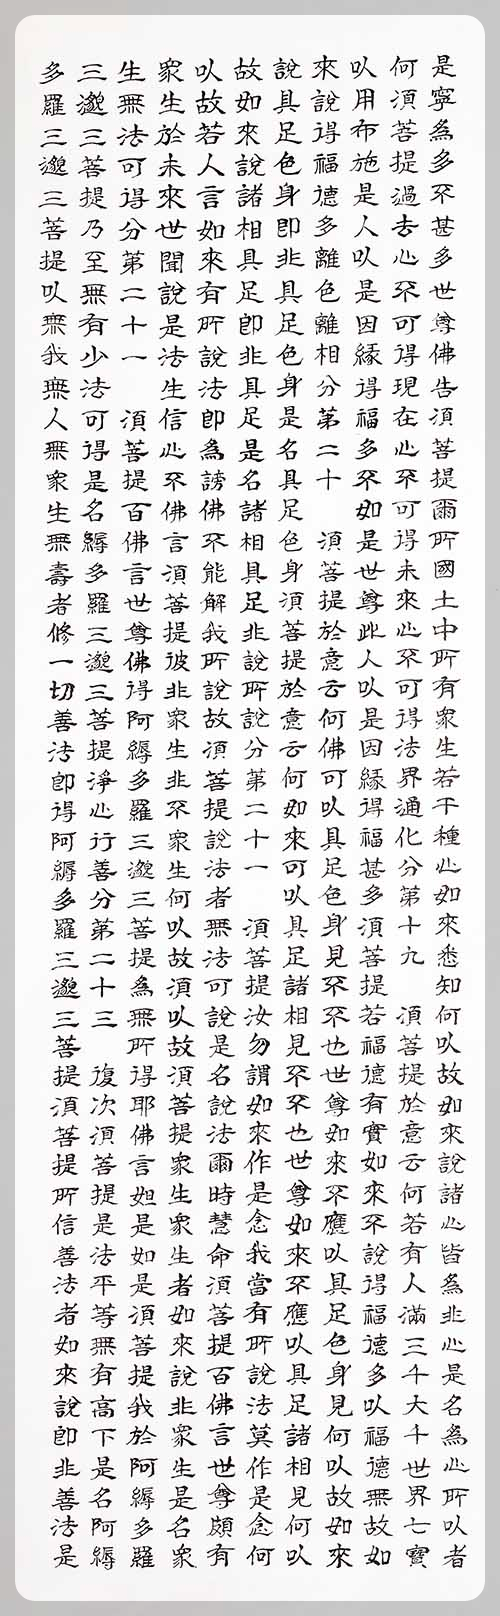 是寧為多不甚多世尊佛告須菩提爾所國土中所有眾生若干種心如來悉知何以故如來說諸心皆為非心是名為心所以者
何須菩提過去心不可得現在心不可得未來心不可得法界通化分第十九　須菩提於意云何若有人滿三千大千世界七寶
以用布施是人以是因緣得福多不如是世尊此人以是因緣得福甚多須菩提若福德有實如來不說得福德多以福德無故如
來說得福德多離色離相分第二十　須菩提於意云何佛可以具足色身見不不也世尊如來不應以具足色身見何以故如來
說具足色身即非具足色身是名具足色身須菩提於意云何如來可以具足諸相見不不也世尊如來不應以具足諸相見何以
故如來說諸相具足即非具足是名諸相具足非說所說分第二十一　須菩提汝勿謂如來作是念我當有所說法莫作是念何
以故若人言如來有所說法即為謗佛不能解我所說故須菩提說法者無法可說是名說法爾時慧命須菩提百佛言世尊頗有
眾生於未來世聞說是法生信心不佛言須菩提彼非眾生非不眾生何以故須以故須菩提眾生眾生者如來說非眾生是名眾
生無法可得分第二十一　須菩提百佛言世尊佛得阿耨多羅三邈三菩提為無所得耶佛言如是如是須菩提我於阿耨多羅
三邈三菩提乃至無有少法可得是名耨多羅三邈三菩提淨心行善分第二十三　復次須菩提是法平等無有高下是名阿耨
多羅三邈三菩提以無我無人無眾生無壽者修一切善法即得阿耨多羅三邈三菩提須菩提所信善法者如來說即非善法是